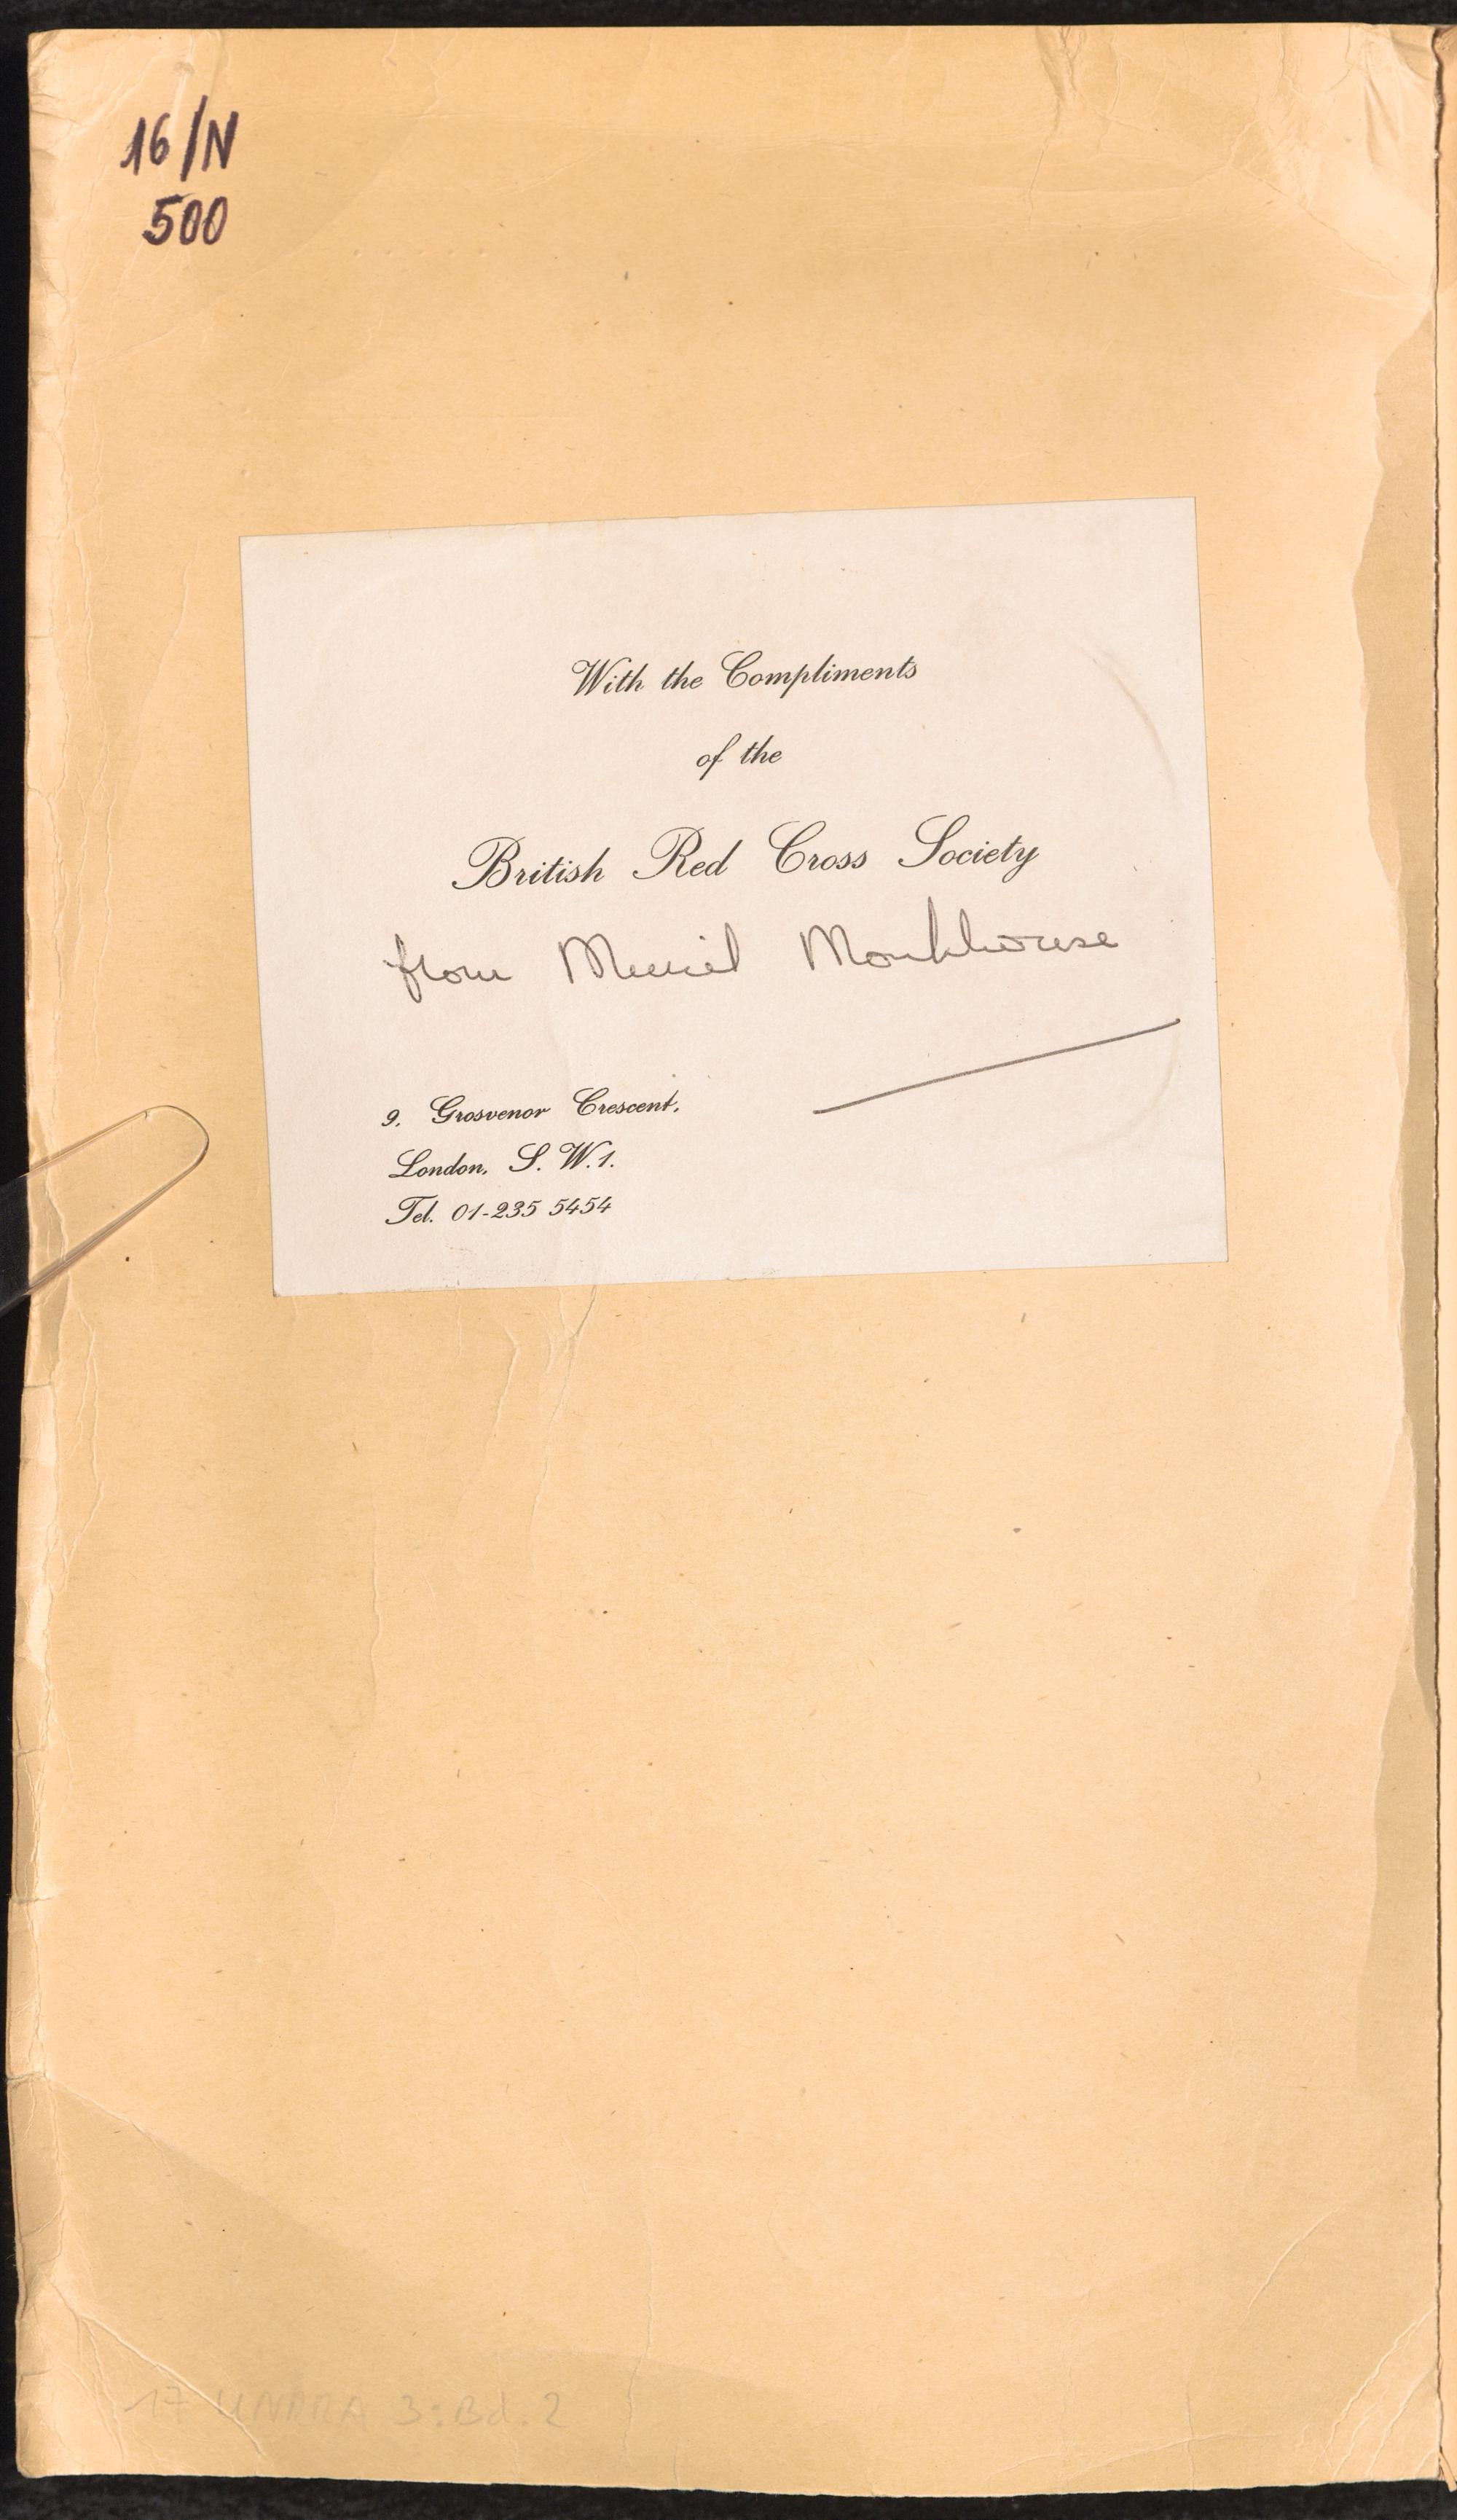 16/N
500
With the Compliments
of the
British Red Cross Society
from Muriel Monkhouse
9, Grosvenor Crescent,
London, S.W.1.
Tel. 01-235 5454
17 UNRRA 3:Bd.2